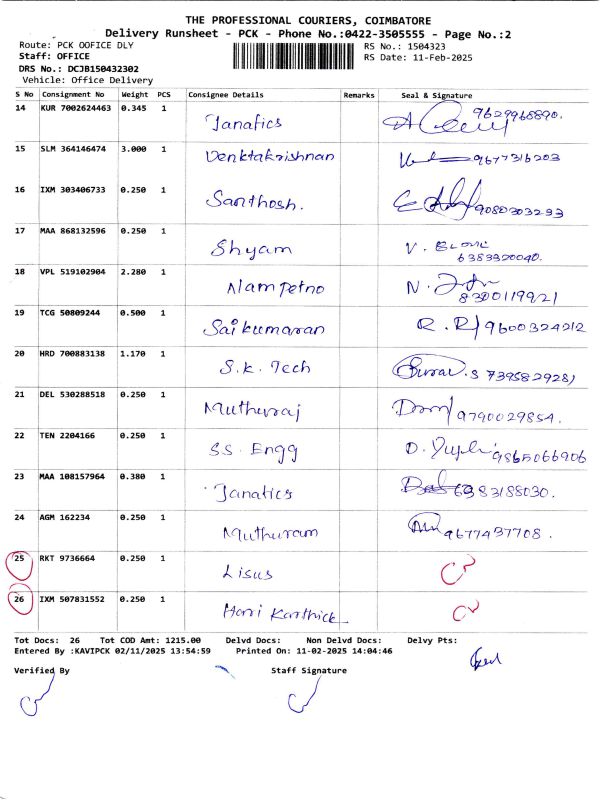 THE PROFESSIONAL COURIERS, COIMBATORE
Delivery Runsheet - PCK - Phone No.:0422-3505555 - Page No.:2
Route: PCK OOFICE DLY
RS No.: 1504323
Staff: OFFICE
RS Date: 11-Feb-2025
DRS No.: DCJB150432302
Vehicle: Office Delivery
S No Consignment No Weight PCS Consignee Details Remarks Seal & Signature
14 KUR 7002624463 0.345 1 Janatics 9629968890.
15 SLM 364146474 3.000 1 Venktakrishnan 9677316203
16 IXM 303406733 0.250 1 Santhosh. 9080303293
17 MAA 868132596 0.250 1 Shyam V.
6383320040.
18 VPL 519102904 2.280 1 Nampetno N.
8300119921
19 TCG 50809244 0.500 1 Saikumaran R. R 9600324212
20 HRD 700883138 1.170 1 S.K. Tech .S 7395829281
21 DEL 530288518 0.250 1 Muthuraj 9790029854.
22 TEN 2204166 0.250 1 S.S. Engg D. 9865066906
23 MAA 108157964 0.380 1 Janatics 6383188030.
24 AGM 162234 0.250 1 Muthuram 9677437708.
25 RKT 9736664 0.250 1 Lisus
26 IXM 507831552 0.250 1 Harri Karthick
Tot Docs: 26 Tot COD Amt: 1215.00 Delvd Docs: Non Delvd Docs: Delvy Pts:
Entered By :KAVIPCK 02/11/2025 13:54:59 Printed On: 11-02-2025 14:04:46
Verified By Staff Signature